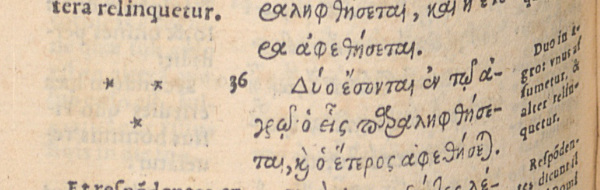 tera relinquetur.
ραληφθήσεται, καὶ ἡ
ρα ἀφεθήσεται.
* *
*
36 Δύο ἔσονται ἐν τῷ ἀ-
γρῷ· ὁ εἷς παραληφθήσε-
ται, κὶ ὁ ἕτερος ἀφεθήσε).
Duo in a-
gro: vnus
sumetur, &
alter relin-
quetur.
Respōden-
dicunt il